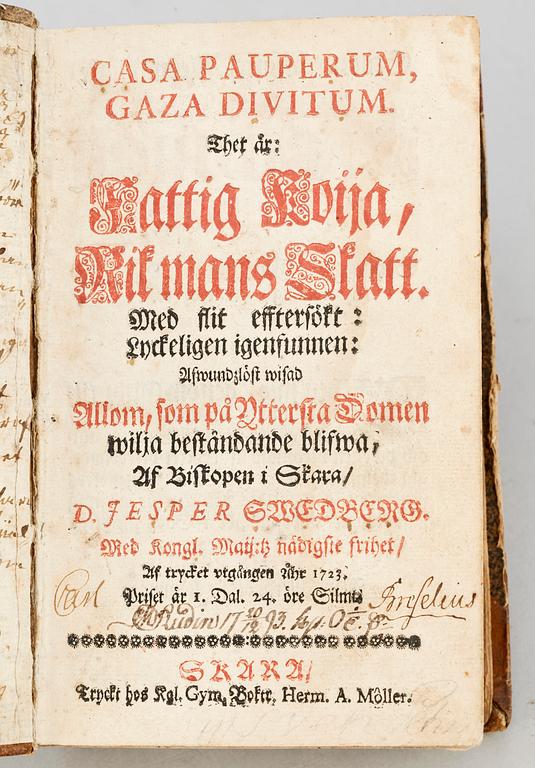 CASA PAUPERUM,
GAZA DIVITUM.
Thet är:
Fattig Koija,
Rik mans Skatt.
Med flit efftersökt:
Lyckeligen igenfunnen:
Afwundzlöst wisad
Allom, som på Yttersta Domen
wilja beståndande blifwa,
Af Biskopen i Skara/
D. JESPER SWEDBERG.
Med Kongl. Maij:tz nådigste frihet/
Af trycket utgången åhr 1723.
Priset är 1. Dal. 24. öre Silmt
Carl Broselius
Rudin 17 93.
SKARA/
Tryckt hos Kgl. Gym. Boktr. Herm. A. Möller.